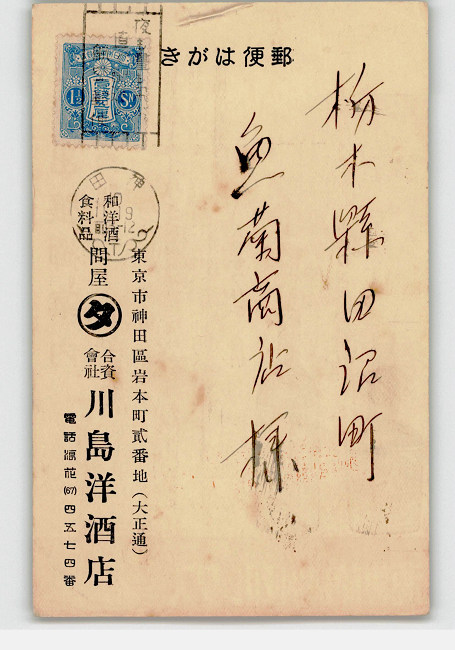 郵便はがき
栃木縣田沼町
魚菊商店様
1½ Sn
神田
9
前 -12
東京市神田區岩本町貳番地(大正通)
和洋酒
食料品
問屋
タ
合資
會社
川島洋酒店
電話浪花(67)四五七四番